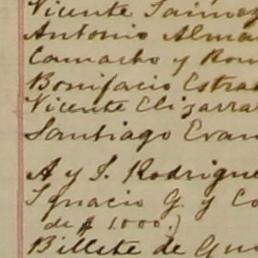 Vicente Sainz
Antonio Alma
Camacho y Rom
Bonifacio Estra
Vicente Elizarra
Santiago Evan
A y S. Rodrigue
Ignacio G. y Co
de $ 1.000.)
Billete de Gu